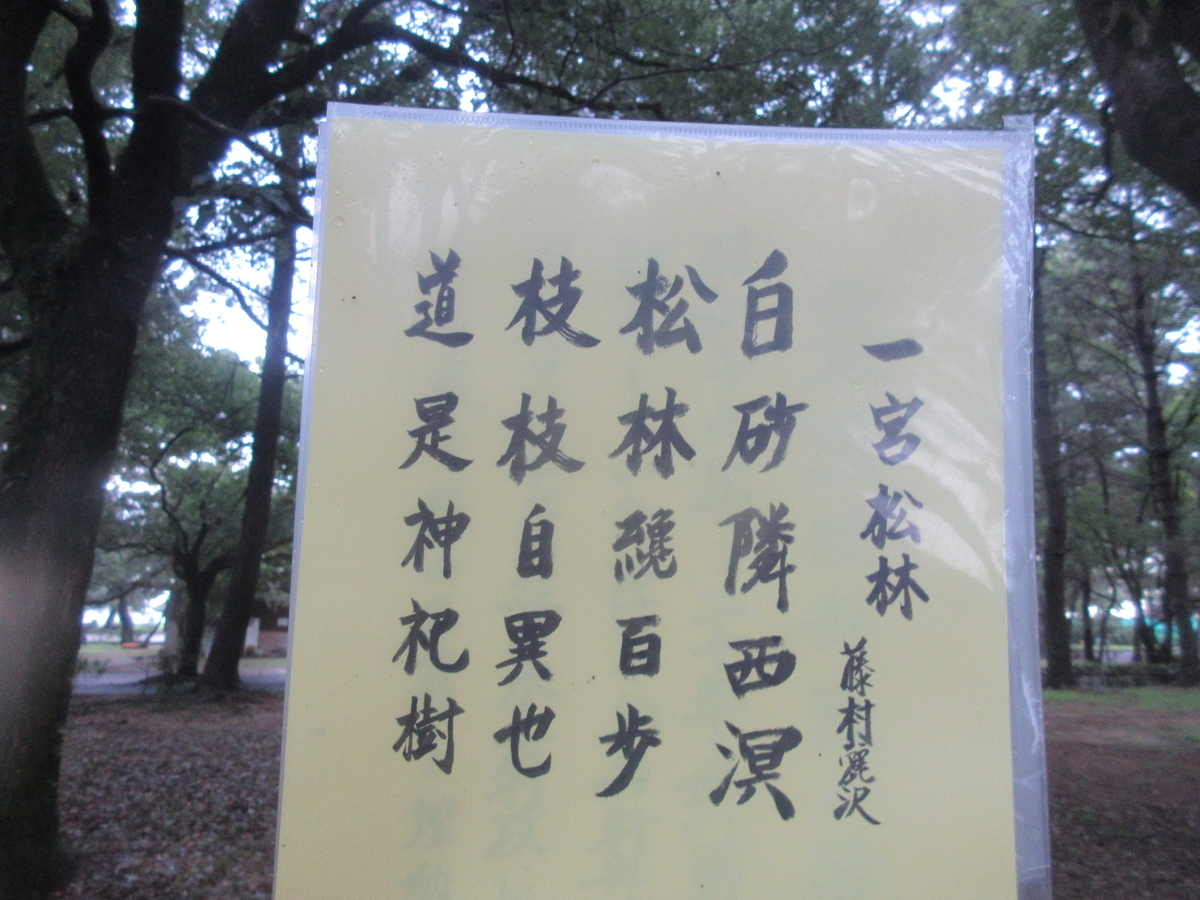 一宮松林
藤村麗沢
白砂隣西溟
松林纔百歩
枝枝自異也
道是神祀樹